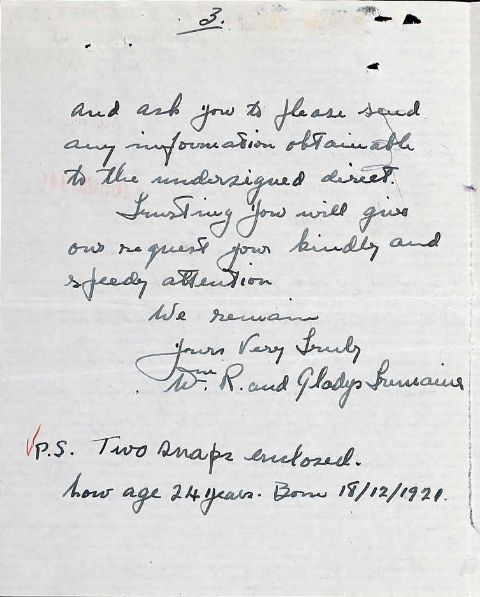 3.
and ask you to please send
any information obtainable
to the undersigned direct.
Trusting you will give
our request your kindly and
speedy attention
We remain
Yours Very Truly
Wm. R. and Gladys
P.S. Two snaps enclosed.
now age 24 years. Born 18/12/1921.